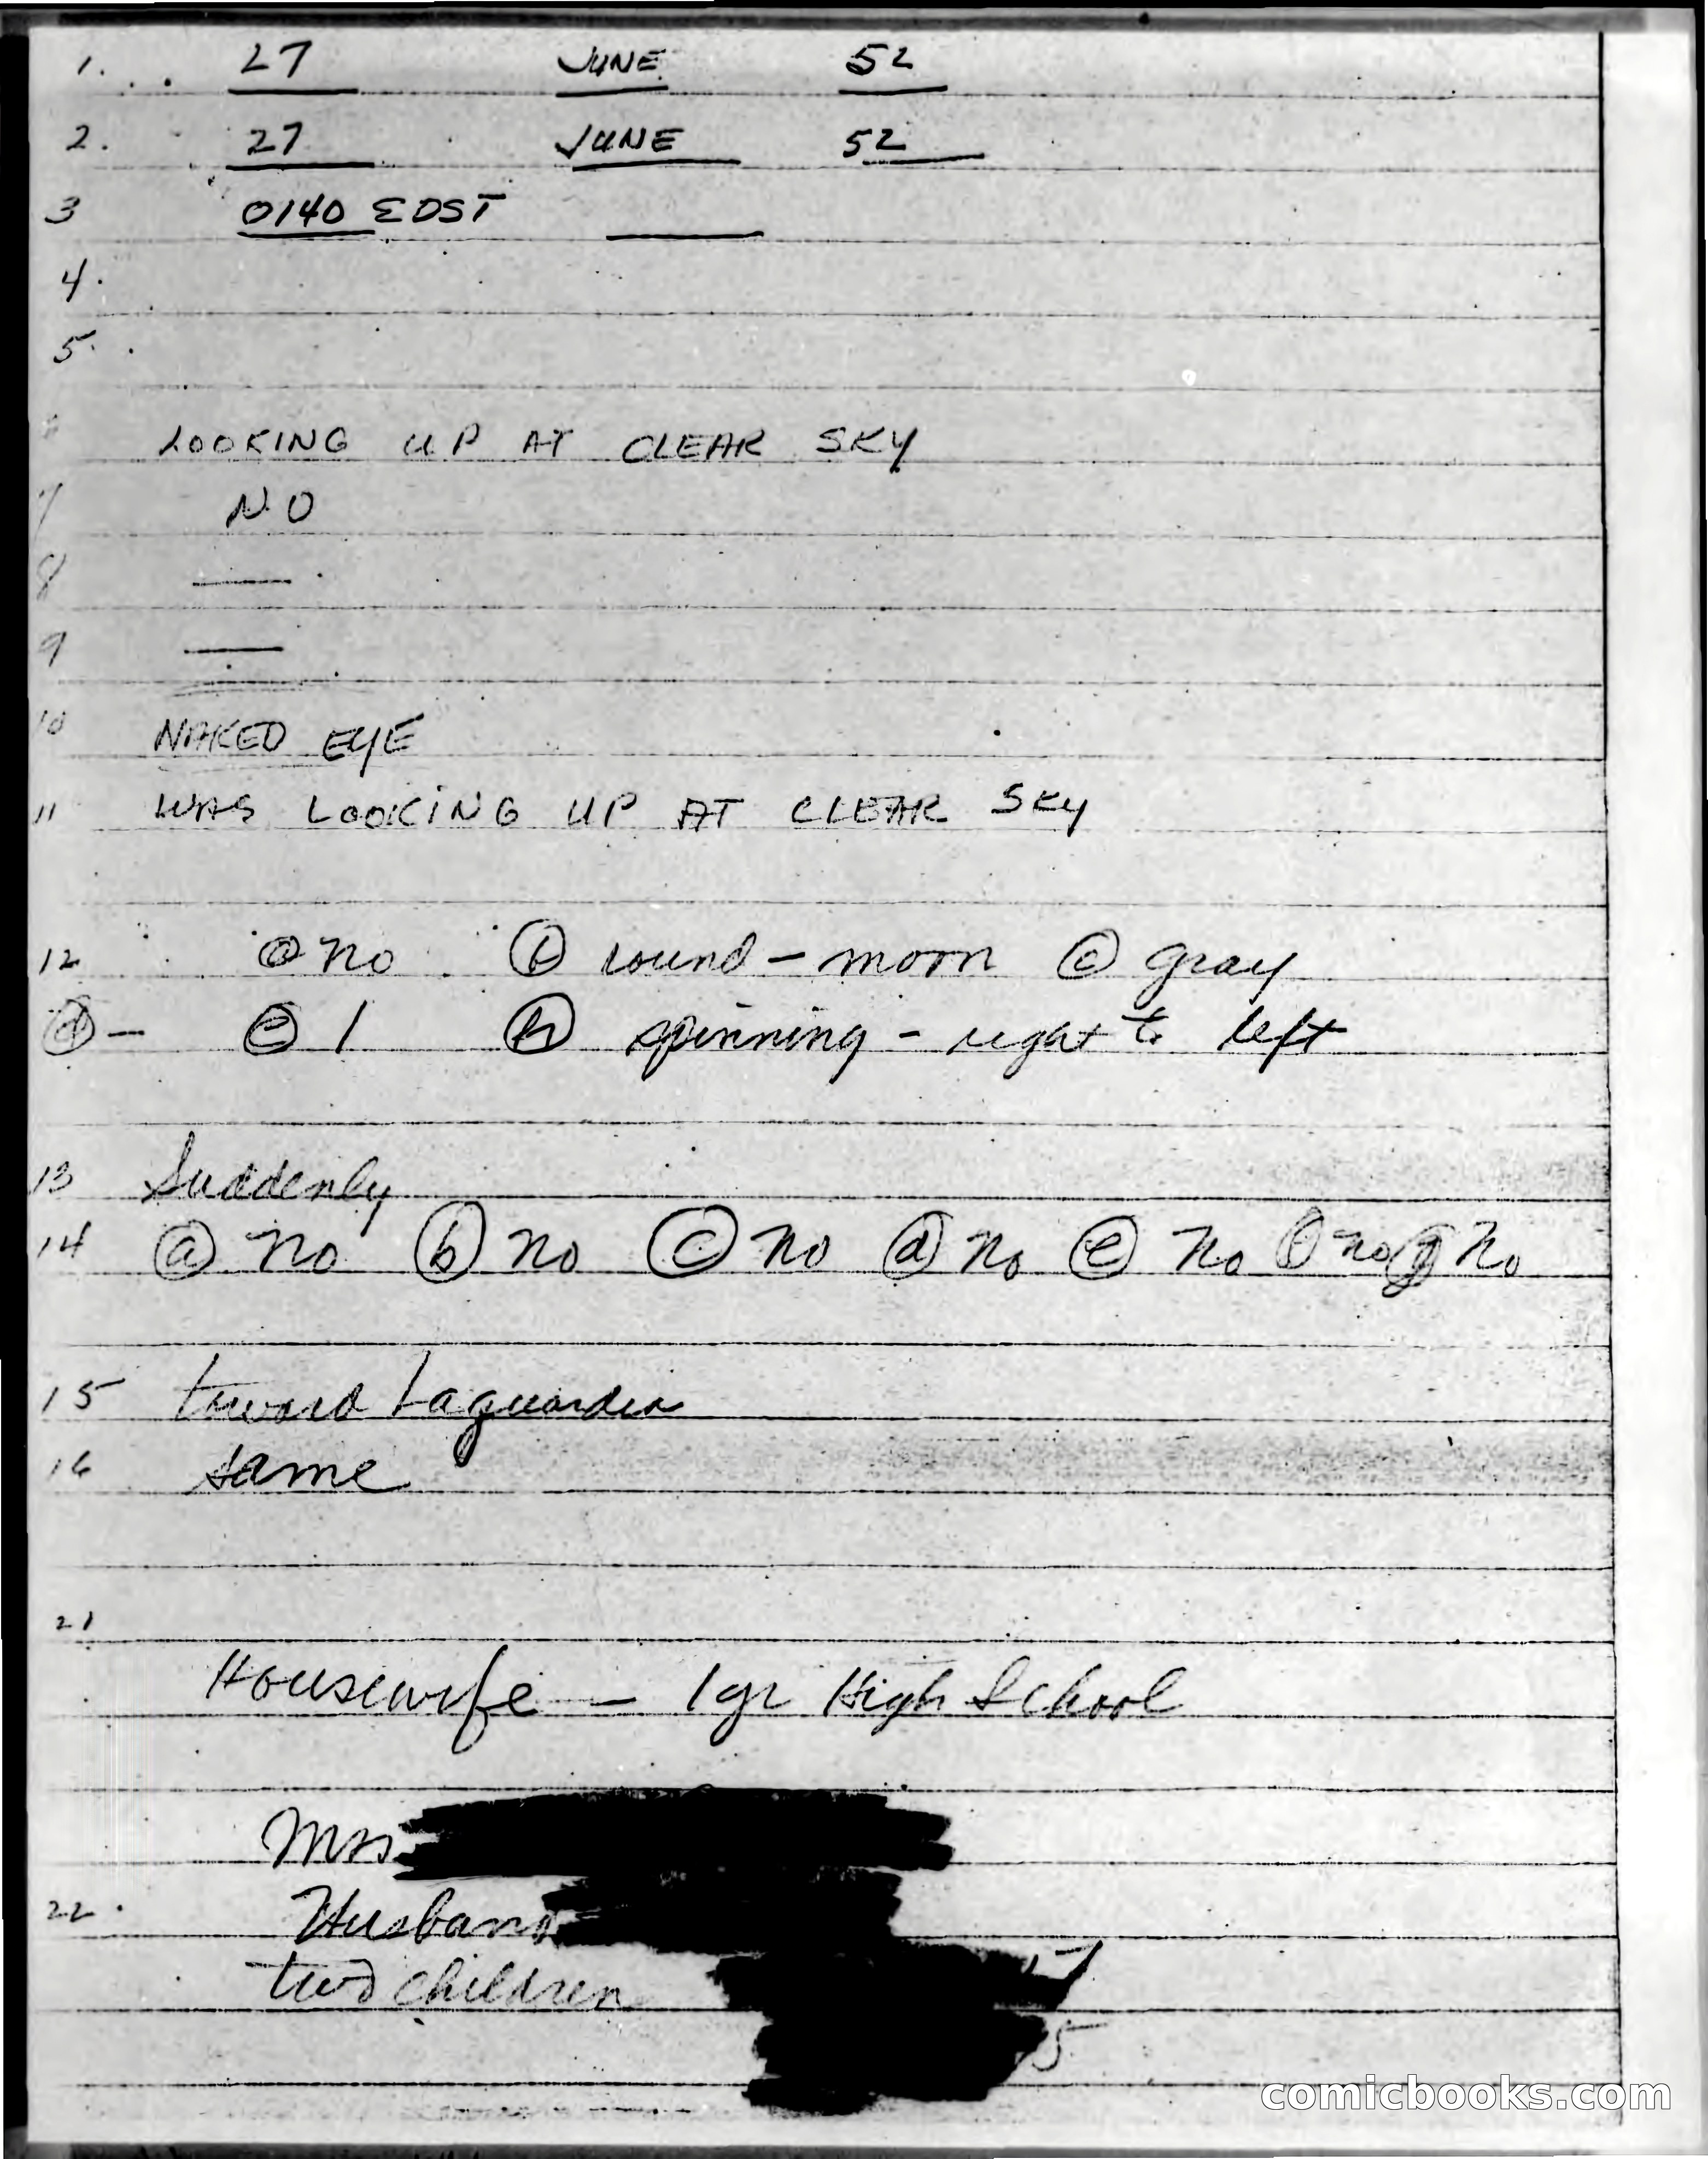 1. 27 JUNE 52
2. 27 JUNE 52
3 0140 EDST
4.
5.
LOOKING UP AT CLEAR SKY
7 NO
8 —
9 —
10 NAKED EYE
11 WAS LOOKING UP AT CLEAR SKY
12 ⓐ no ⓑ round - moon ⓒ gray
ⓓ - ⓔ 1 ⓗ spinning - right to left
13 Suddenly
14 ⓐ no ⓑ no ⓒ no ⓓ no ⓔ no ⓕ no ⓖ no
15 toward Laguardia
16 same
21
Housewife - 1 yr High School
Mrs
22. Husband
two children 7
5
comicbooks.com